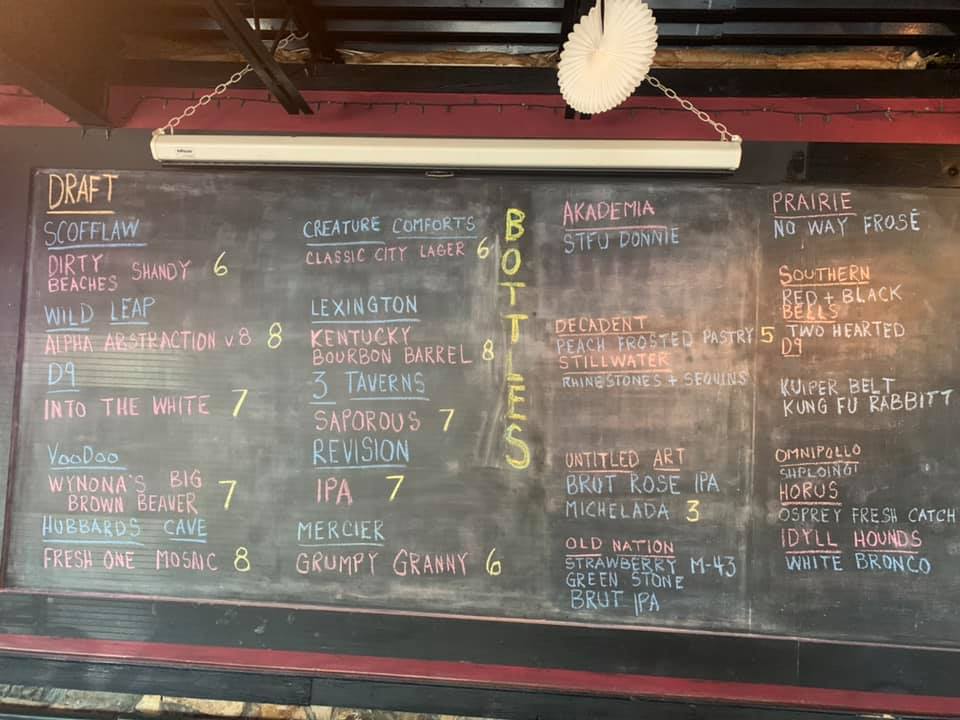 DRAFT
SCOFFLAW
DIRTY
BEACHES SHANDY 6
WILD LEAP
ALPHA ABSTRACTION v8 8
D9
INTO THE WHITE 7
VOODOO
WYNONA'S BIG
BROWN BEAVER 7
HUBBARDS CAVE
FRESH ONE MOSAIC 8
CREATURE COMFORTS
CLASSIC CITY LAGER 6
LEXINGTON
KENTUCKY
BOURBON BARREL 8
3 TAVERNS
SAPOROUS 7
REVISION
IPA 7
MERCIER
GRUMPY GRANNY 6
BOTTLES
AKADEMIA
STFU DONNIE
DECADENT
PEACH FROSTED PASTRY 5
STILLWATER
RHINESTONES + SEQUINS
UNTITLED ART
BRUT ROSE IPA
MICHELADA 3
OLD NATION
STRAWBERRY M-43
GREEN STONE
BRUT IPA
PRAIRIE
NO WAY FROSÉ
SOUTHERN
RED + BLACK
BELLS
TWO HEARTED
D9
KUIPER BELT
KUNG FU RABBITT
OMNIPOLLO
SHPLOING!
HORUS
OSPREY FRESH CATCH
IDYLL HOUNDS
WHITE BRONCO